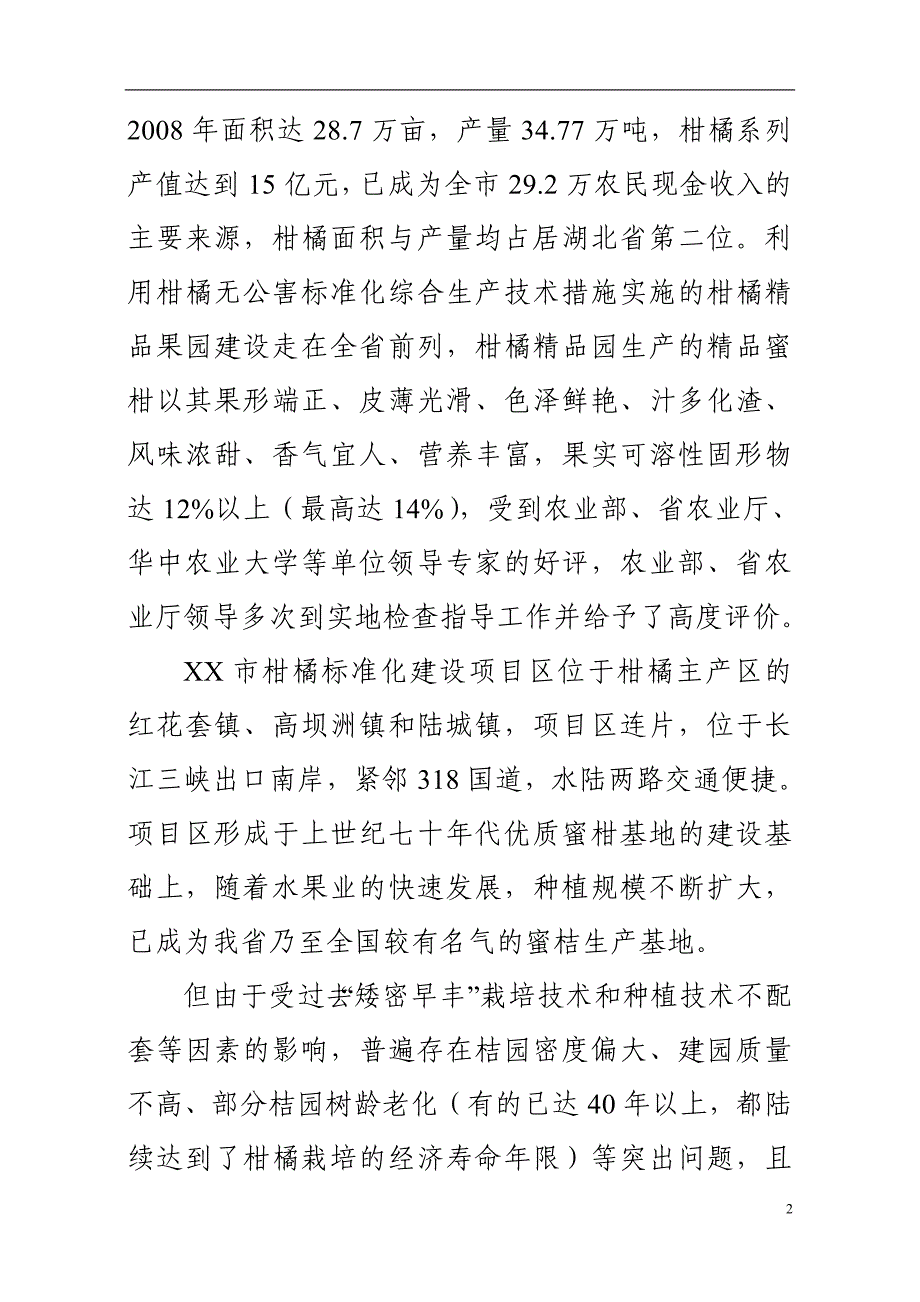 2008 年面积达 28.7 万亩，产量 34.77 万吨，柑橘系列
产值达到 15 亿元，已成为全市 29.2 万农民现金收入的
主要来源，柑橘面积与产量均占居湖北省第二位。利
用柑橘无公害标准化综合生产技术措施实施的柑橘精
品果园建设走在全省前列，柑橘精品园生产的精品蜜
柑以其果形端正、皮薄光滑、色泽鲜艳、汁多化渣、
风味浓甜、香气宜人、营养丰富，果实可溶性固形物
达 12%以上（最高达 14%），受到农业部、省农业厅、
华中农业大学等单位领导专家的好评，农业部、省农
业厅领导多次到实地检查指导工作并给予了高度评价。
XX 市柑橘标准化建设项目区位于柑橘主产区的
红花套镇、高坝洲镇和陆城镇，项目区连片，位于长
江三峡出口南岸，紧邻 318 国道，水陆两路交通便捷。
项目区形成于上世纪七十年代优质蜜柑基地的建设基
础上，随着水果业的快速发展，种植规模不断扩大，
已成为我省乃至全国较有名气的蜜桔生产基地。
但由于受过去“矮密早丰”栽培技术和种植技术不配
套等因素的影响，普遍存在桔园密度偏大、建园质量
不高、部分桔园树龄老化（有的已达 40 年以上，都陆
续达到了柑橘栽培的经济寿命年限）等突出问题，且
2